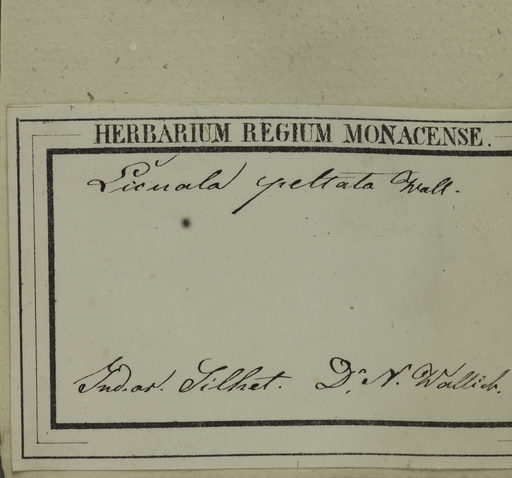 HERBARIUM REGIUM MONACENSE.
Licuala peltata Wall.
Ind. or. Silhet. Dr. N. Wallich.